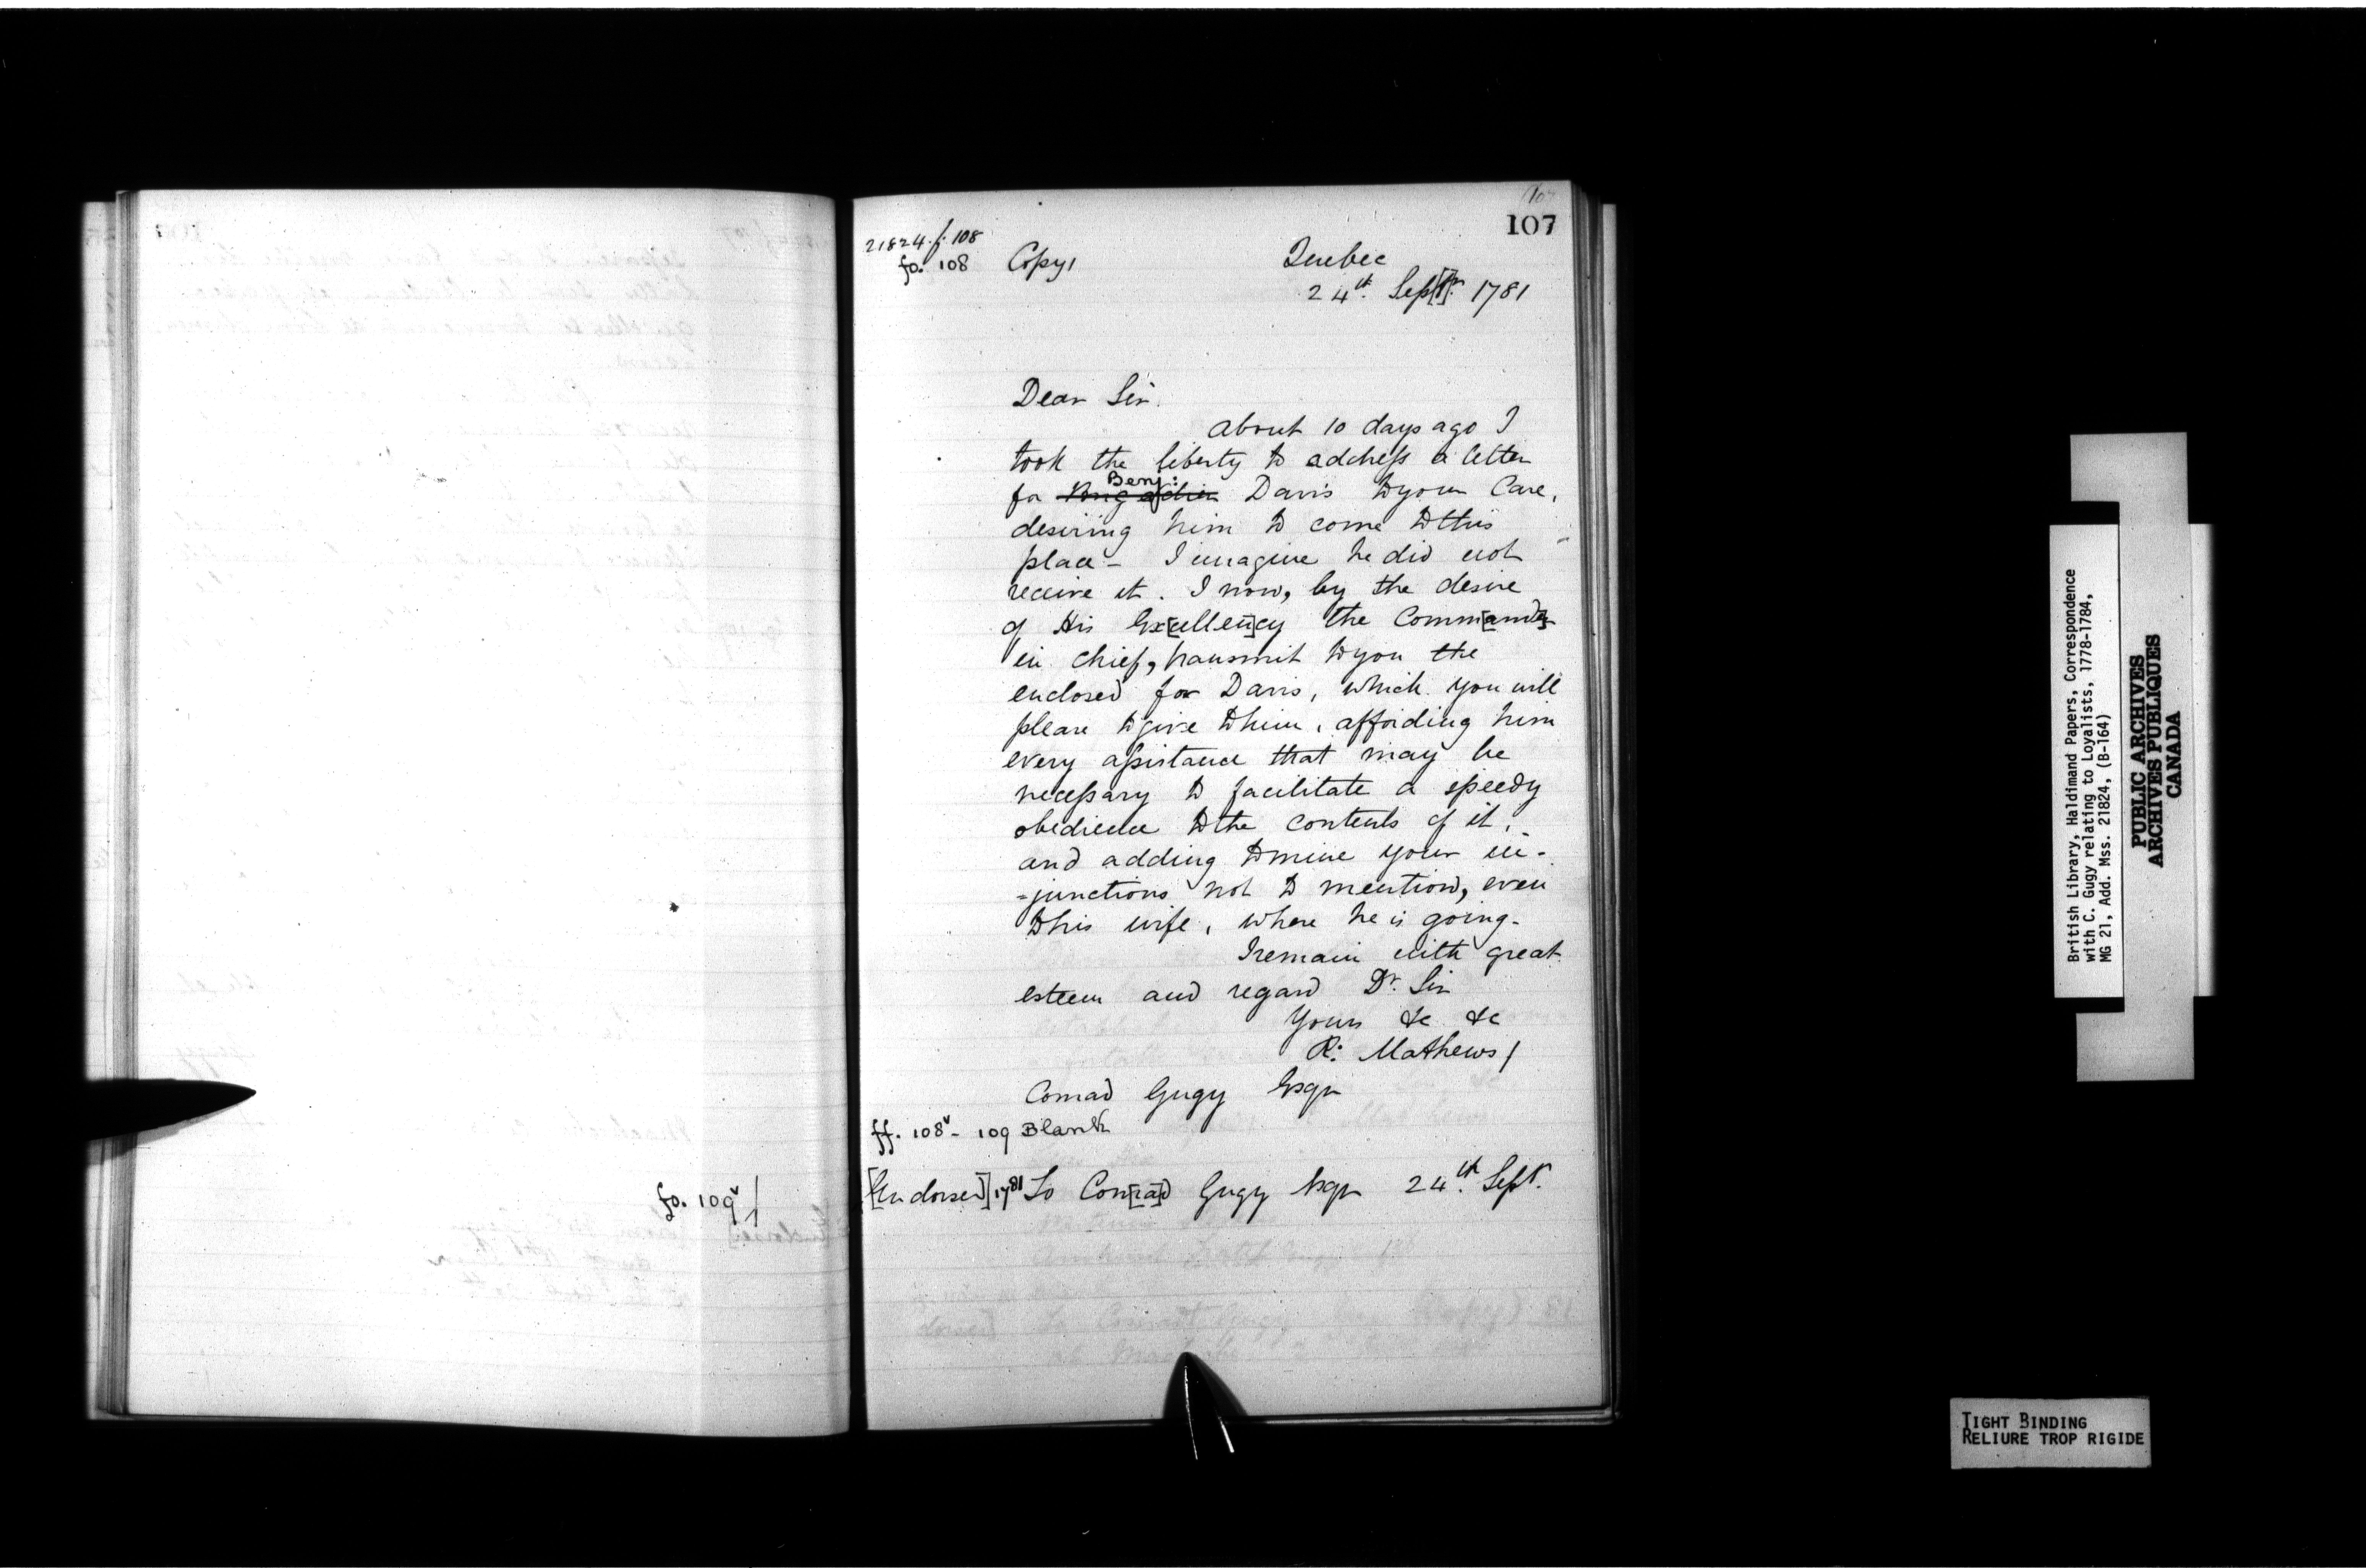 107
21824. f. 108
fo. 108 Copy
Quebec
24th. Sep[t]r. 1781
Dear Sir.
About 10 days ago I
took the liberty to address a letter
for Benj: Davis to your Care,
desiring him to come to this
place - I imagine he did not
receive it. I now, by the desire
of His Ex[cellen]cy the Comm[ande]r
in Chief, transmit to you the
enclosed for Davis, which you will
please to give to him, affording him
every assistance that may be
necessary to facilitate a speedy
obedience to the contents of it,
and adding to mine your in-
-junctions not to mention, even
to his wife, where he is going-
I remain with great
esteem and regard Dr. Sir
Yours &c &c
R: Mathews/
Conrad Gugy Esqr
ff. 108v - 109 Blank
fo. 109v/
[Endorsed] 1781 To Con[ra]d Gugy Esqr 24th. Sept.
British Library, Haldimand Papers, Correspondence
with C. Gugy relating to Loyalists, 1778-1784,
MG 21, Add. Mss. 21824, (B-164)
PUBLIC ARCHIVES
ARCHIVES PUBLIQUES
CANADA
TIGHT BINDING
RELIURE TROP RIGIDE